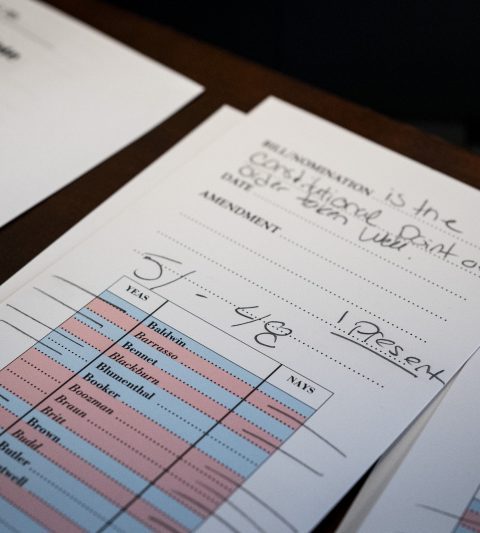 BILL/NOMINATION is the
Constitutional Point of
DATE Order taken Well.
AMENDMENT
51 - 48 1 Present
YEAS NAYS
Baldwin
Barrasso
Bennet
Blackburn
Blumenthal
Booker
Boozman
Braun
Britt
Brown
Budd
Butler